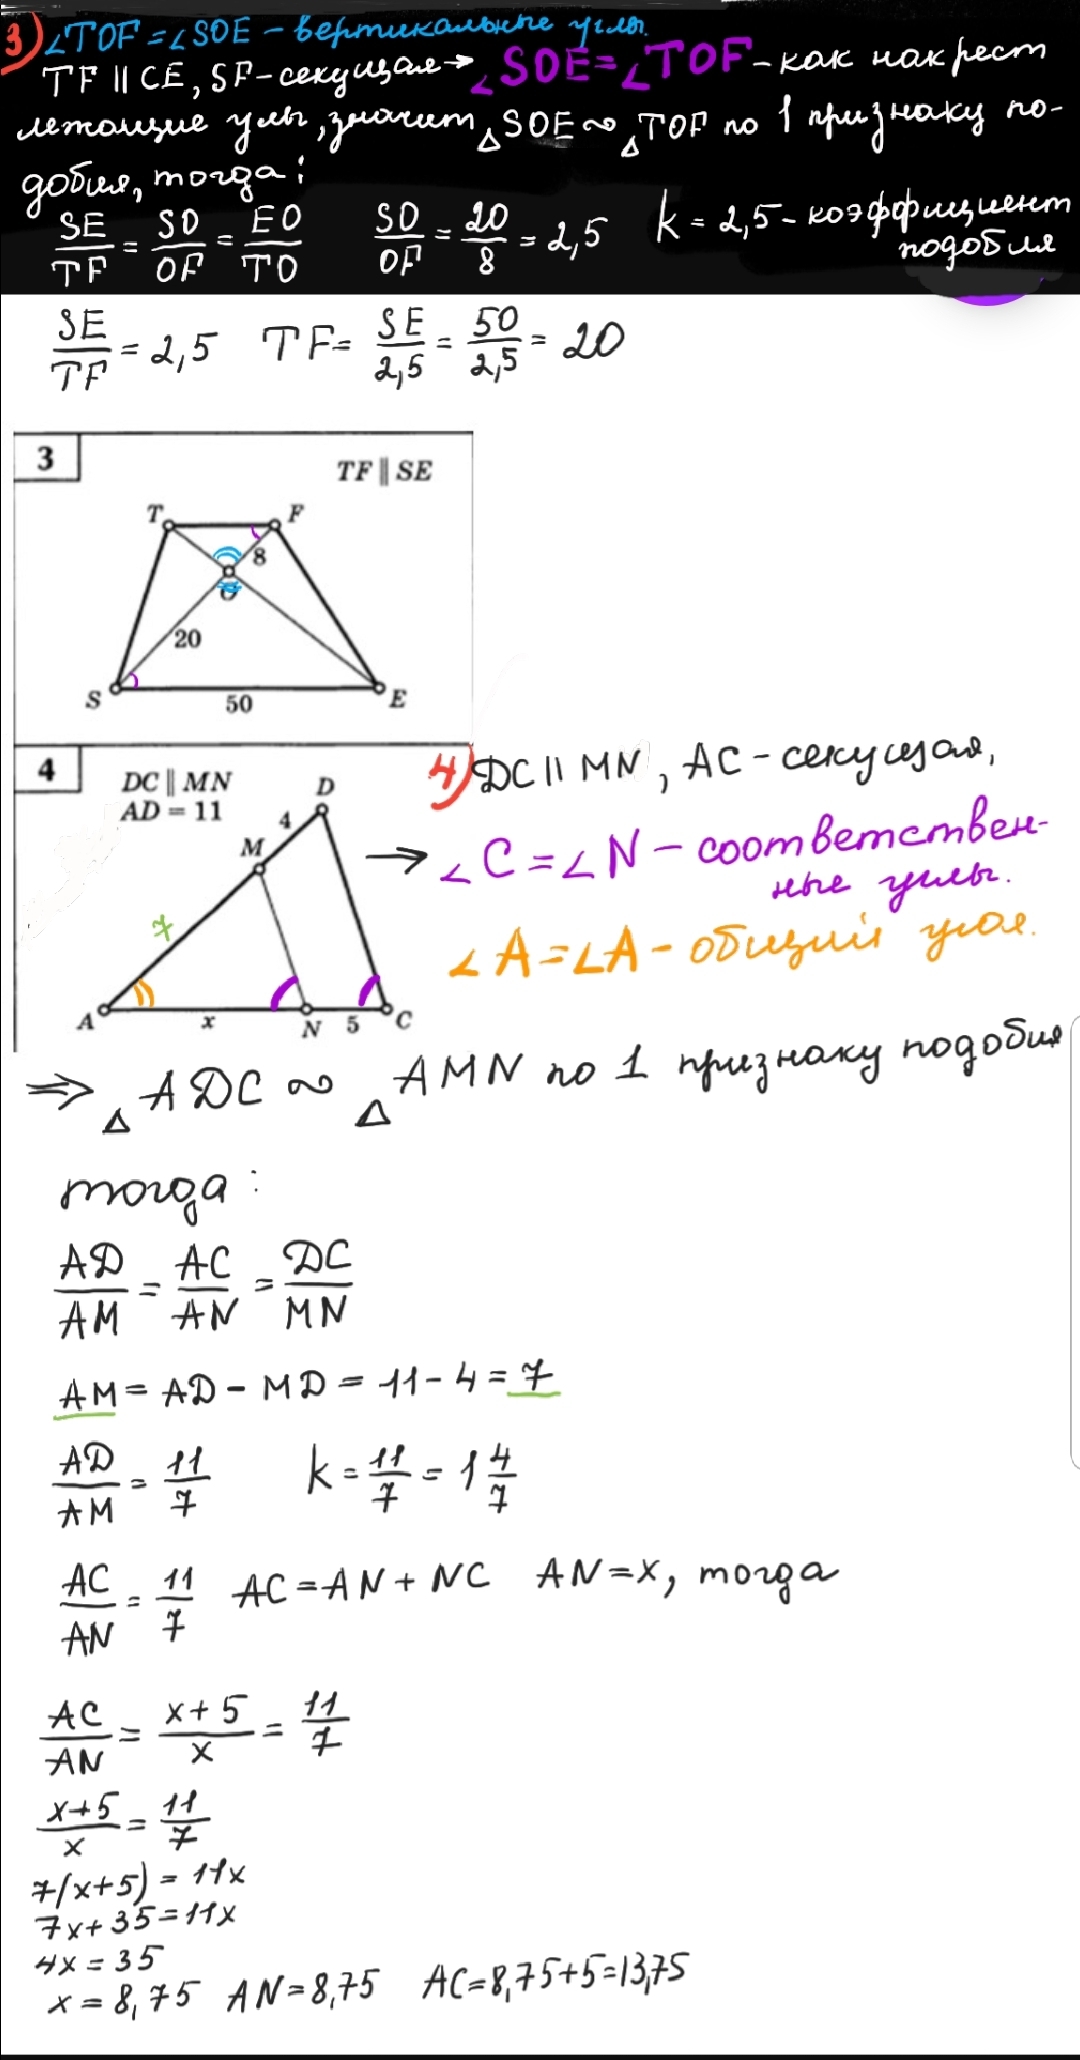 3) ∠TOF = ∠SOE – вертикальные углы.
TF || CE, SF – секущая → ∠SOE = ∠TOF – как накрест
лежащие углы, значит △SOE ∾ △TOF по 1 признаку по-
добия, тогда:
SE/TF = SO/OF = EO/TO SO/OF = 20/8 = 2,5 k = 2,5 – коэффициент
подобия
SE/TF = 2,5 TF = SE/2,5 = 50/2,5 = 20
3
TF || SE
T F
8
O
20
S E
50
4
DC || MN
AD = 11
D
4
M
7
A x N 5 C
4) DC || MN, AC – секущая,
→ ∠C = ∠N – соответствен-
ные углы.
∠A = ∠A – общий угол.
⇒ △ADC ∾ △AMN по 1 признаку подобия
тогда:
AD/AM = AC/AN = DC/MN
AM = AD – MD = 11 – 4 = 7
AD/AM = 11/7 k = 11/7 = 1 4/7
AC/AN = 11/7 AC = AN + NC AN = x, тогда
AC/AN = x+5/x = 11/7
x+5/x = 11/7
7(x+5) = 11x
7x+35=11x
4x = 35
x = 8,75 AN = 8,75 AC=8,75+5=13,75